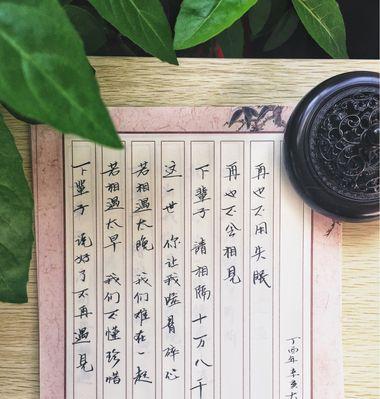 下辈子 说好了不再遇见
若相遇太早 我们不懂珍惜
若相遇太晚 我们难在一起
这一世 你让我 骨碎心
下辈子 请相隔十万八千
再也不会相见
再也不用失眠
丁酉年 辛亥